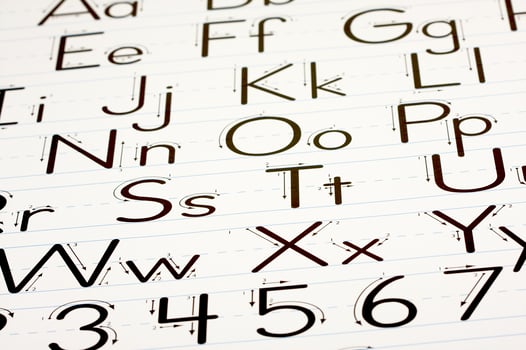 Ee Ff Gg
Ii Jj Kk Ll
Nn Oo Pp
r Ss Tt U
Ww Xx Y
3 4 5 6 7